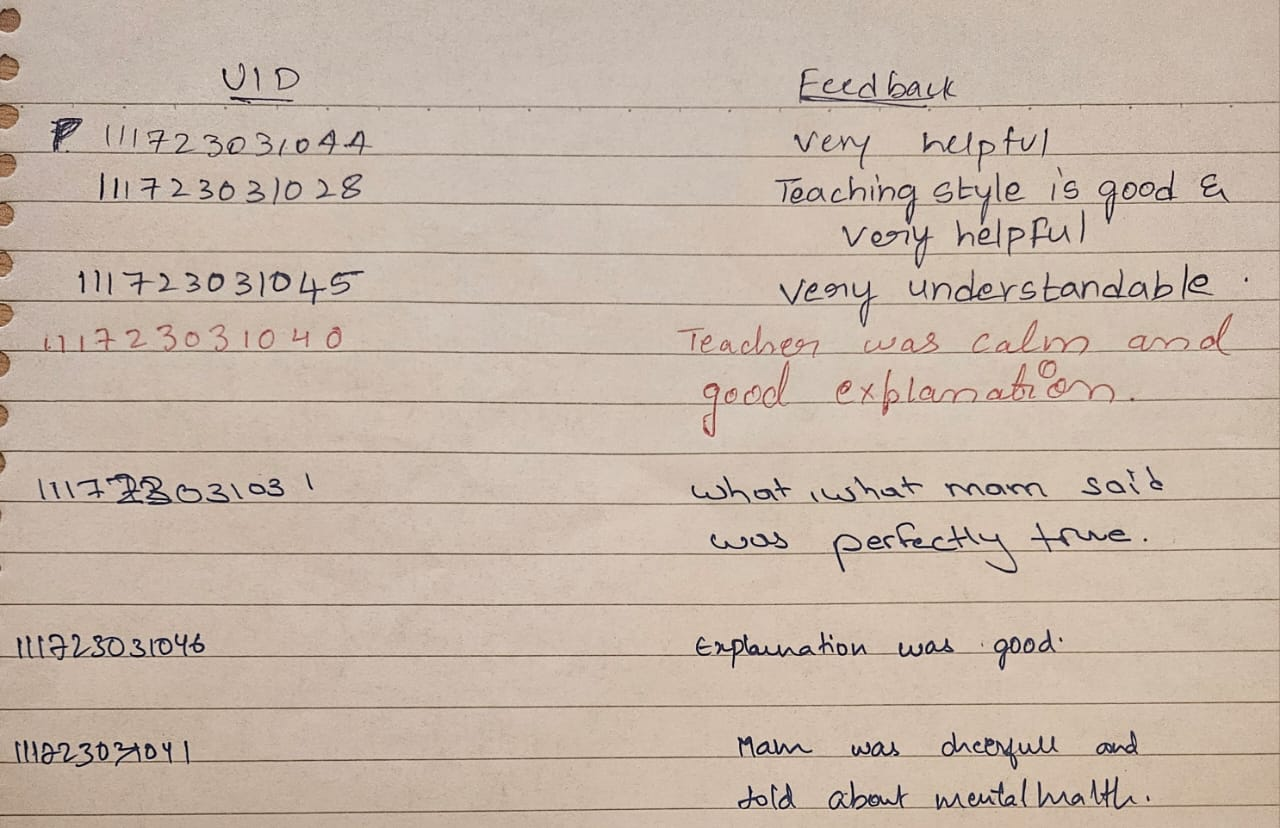 UID Feedback
111723031044 very helpful
111723031028 Teaching style is good &
very helpful
111723031045 very understandable.
111723031040 Teacher was calm and
good explanation.
111723031031 what, what mam said
was perfectly true.
111723031046 Explaination was good.
111723031041 Mam was cheerfull and
told about mental health.